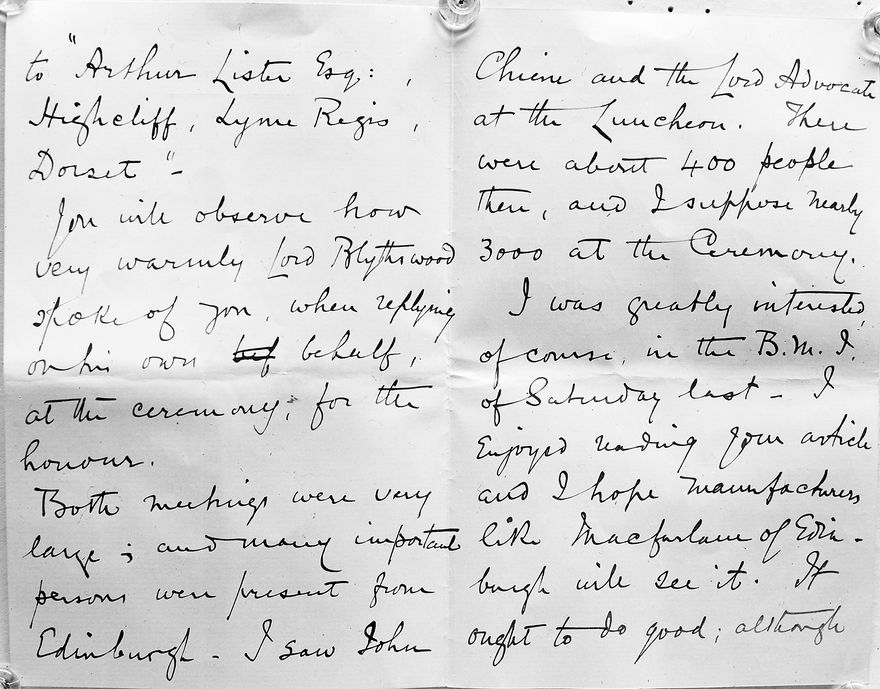 to "Arthur Lister Esq: ,
Highcliff, Lyme Regis,
Dorset"-
You will observe how
very warmly Lord Blythswood
spoke of you, when replying
on his own bef behalf,
at the ceremony, for the
honour.
Both meetings were very
large; and many important
persons were present from
Edinburgh - I saw John
Chiene and the Lord Advocate
at the Luncheon. There
were about 400 people
there, and I suppose nearly
3000 at the Ceremony.
I was greatly interested,
of course, in the B.M.J.
of Saturday last - I
Enjoyed reading your article
and I hope manufacturers
like Macfarlane of Edin-
burgh will see it. It
ought to do good; although